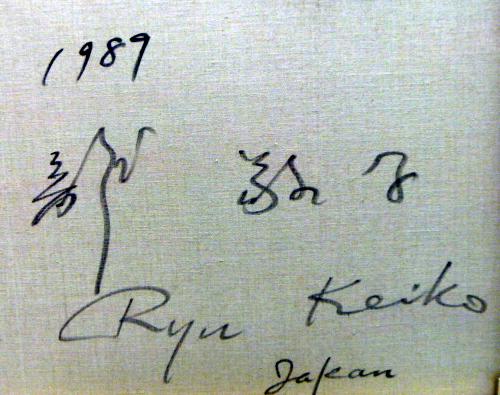 1989
敬子
Ryu Keiko
Japan